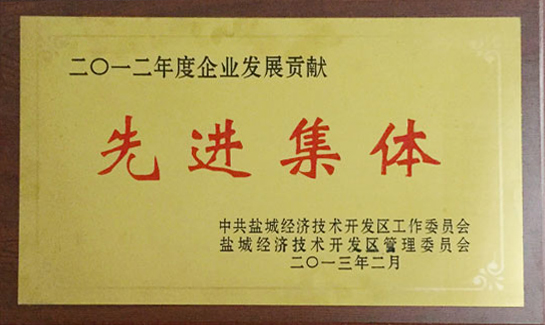 二〇一二年度企业发展贡献
先进集体
中共盐城经济技术开发区工作委员会
盐城经济技术开发区管理委员会
二〇一三年二月